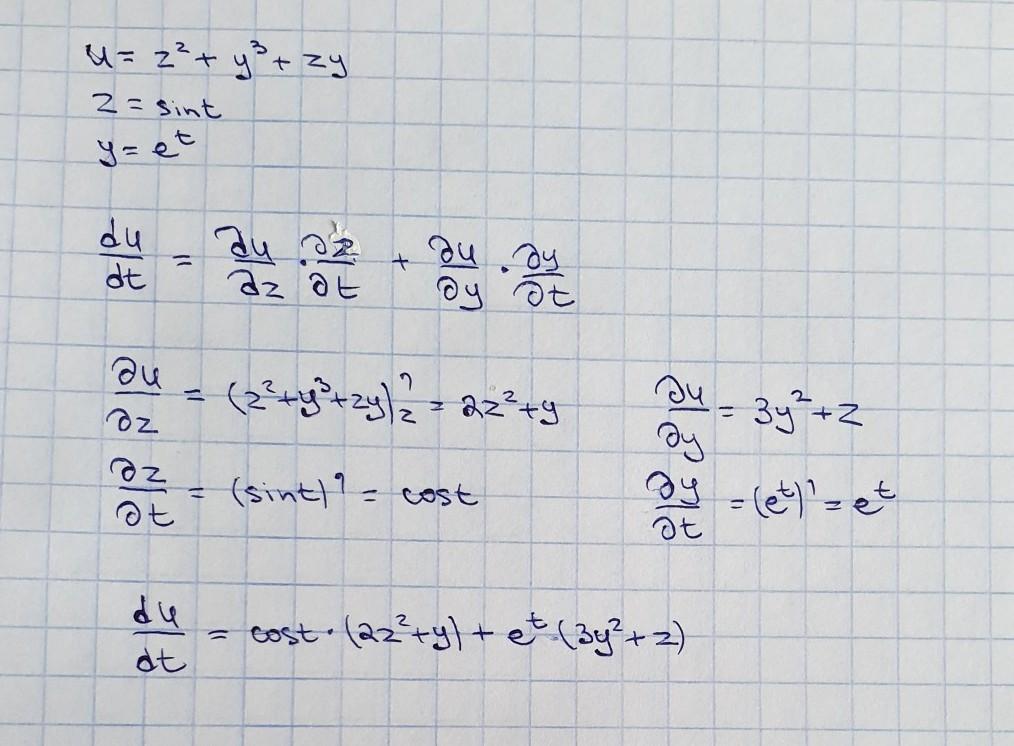 u = z² + y³ + zy
z = sint
y = e^t
du/dt = ∂u/∂z · ∂z/∂t + ∂u/∂y · ∂y/∂t
∂u/∂z = (z²+y³+zy)'_z = 2z²+y    ∂u/∂y = 3y²+z
∂z/∂t = (sint)' = cost    ∂y/∂t = (e^t)' = e^t
du/dt = cost · (2z²+y) + e^t · (3y²+z)